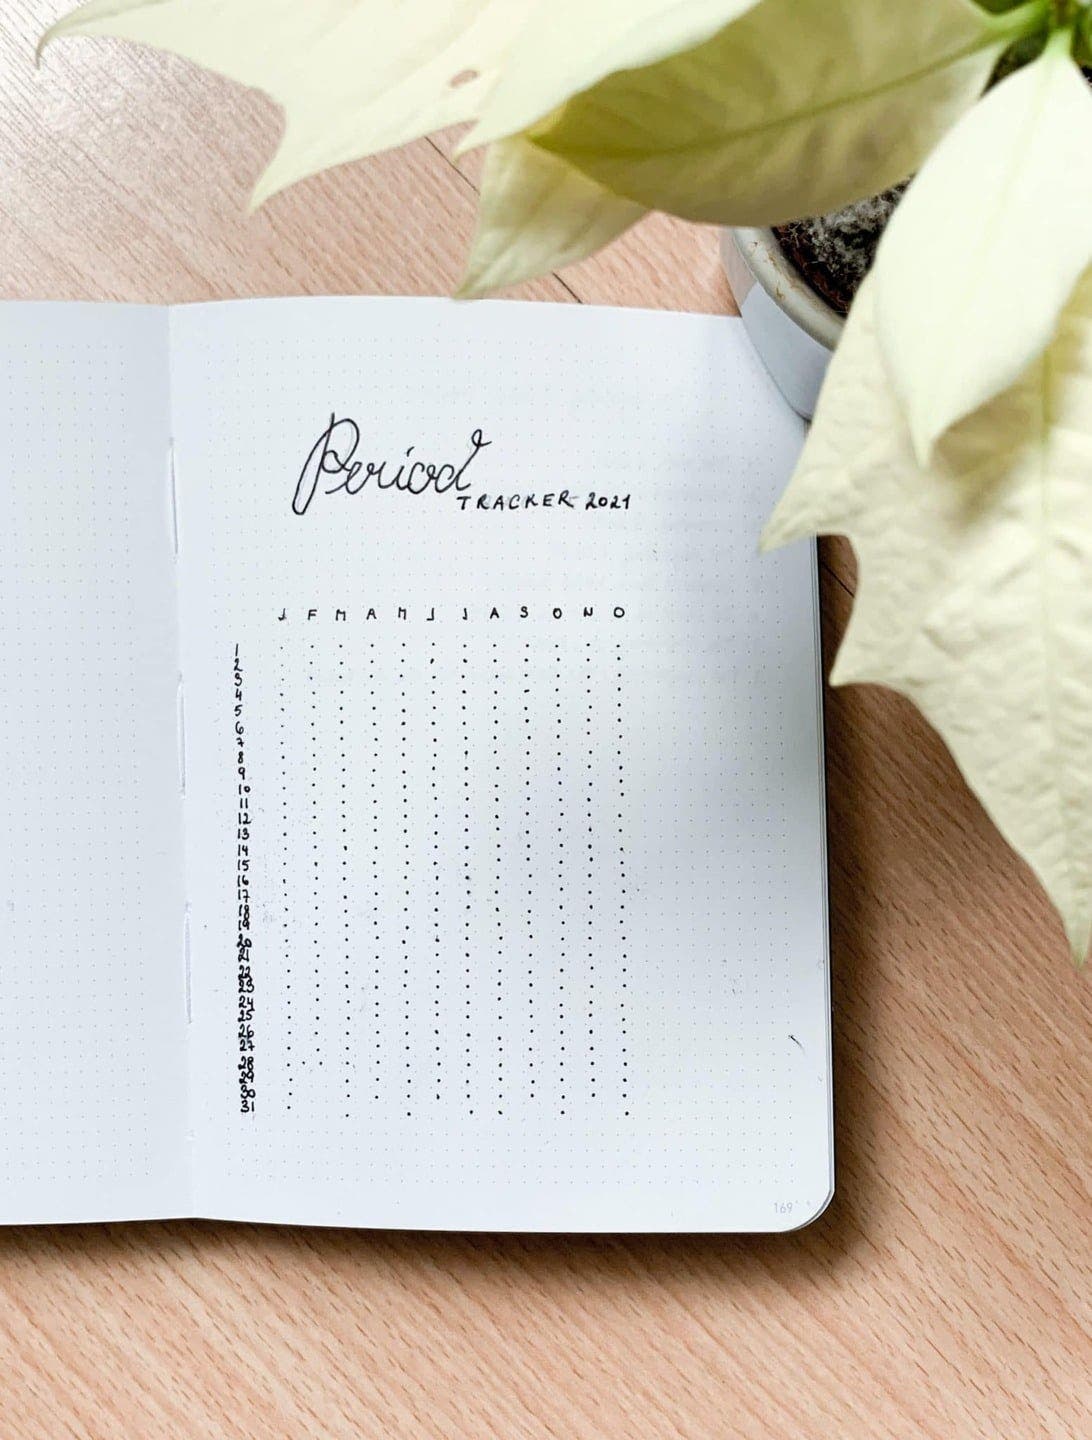 Period
TRACKER 2021
J F M A M J J A S O N D
1
2
3
4
5
6
7
8
9
10
11
12
13
14
15
16
17
18
19
20
21
22
23
24
25
26
27
28
29
30
31
169